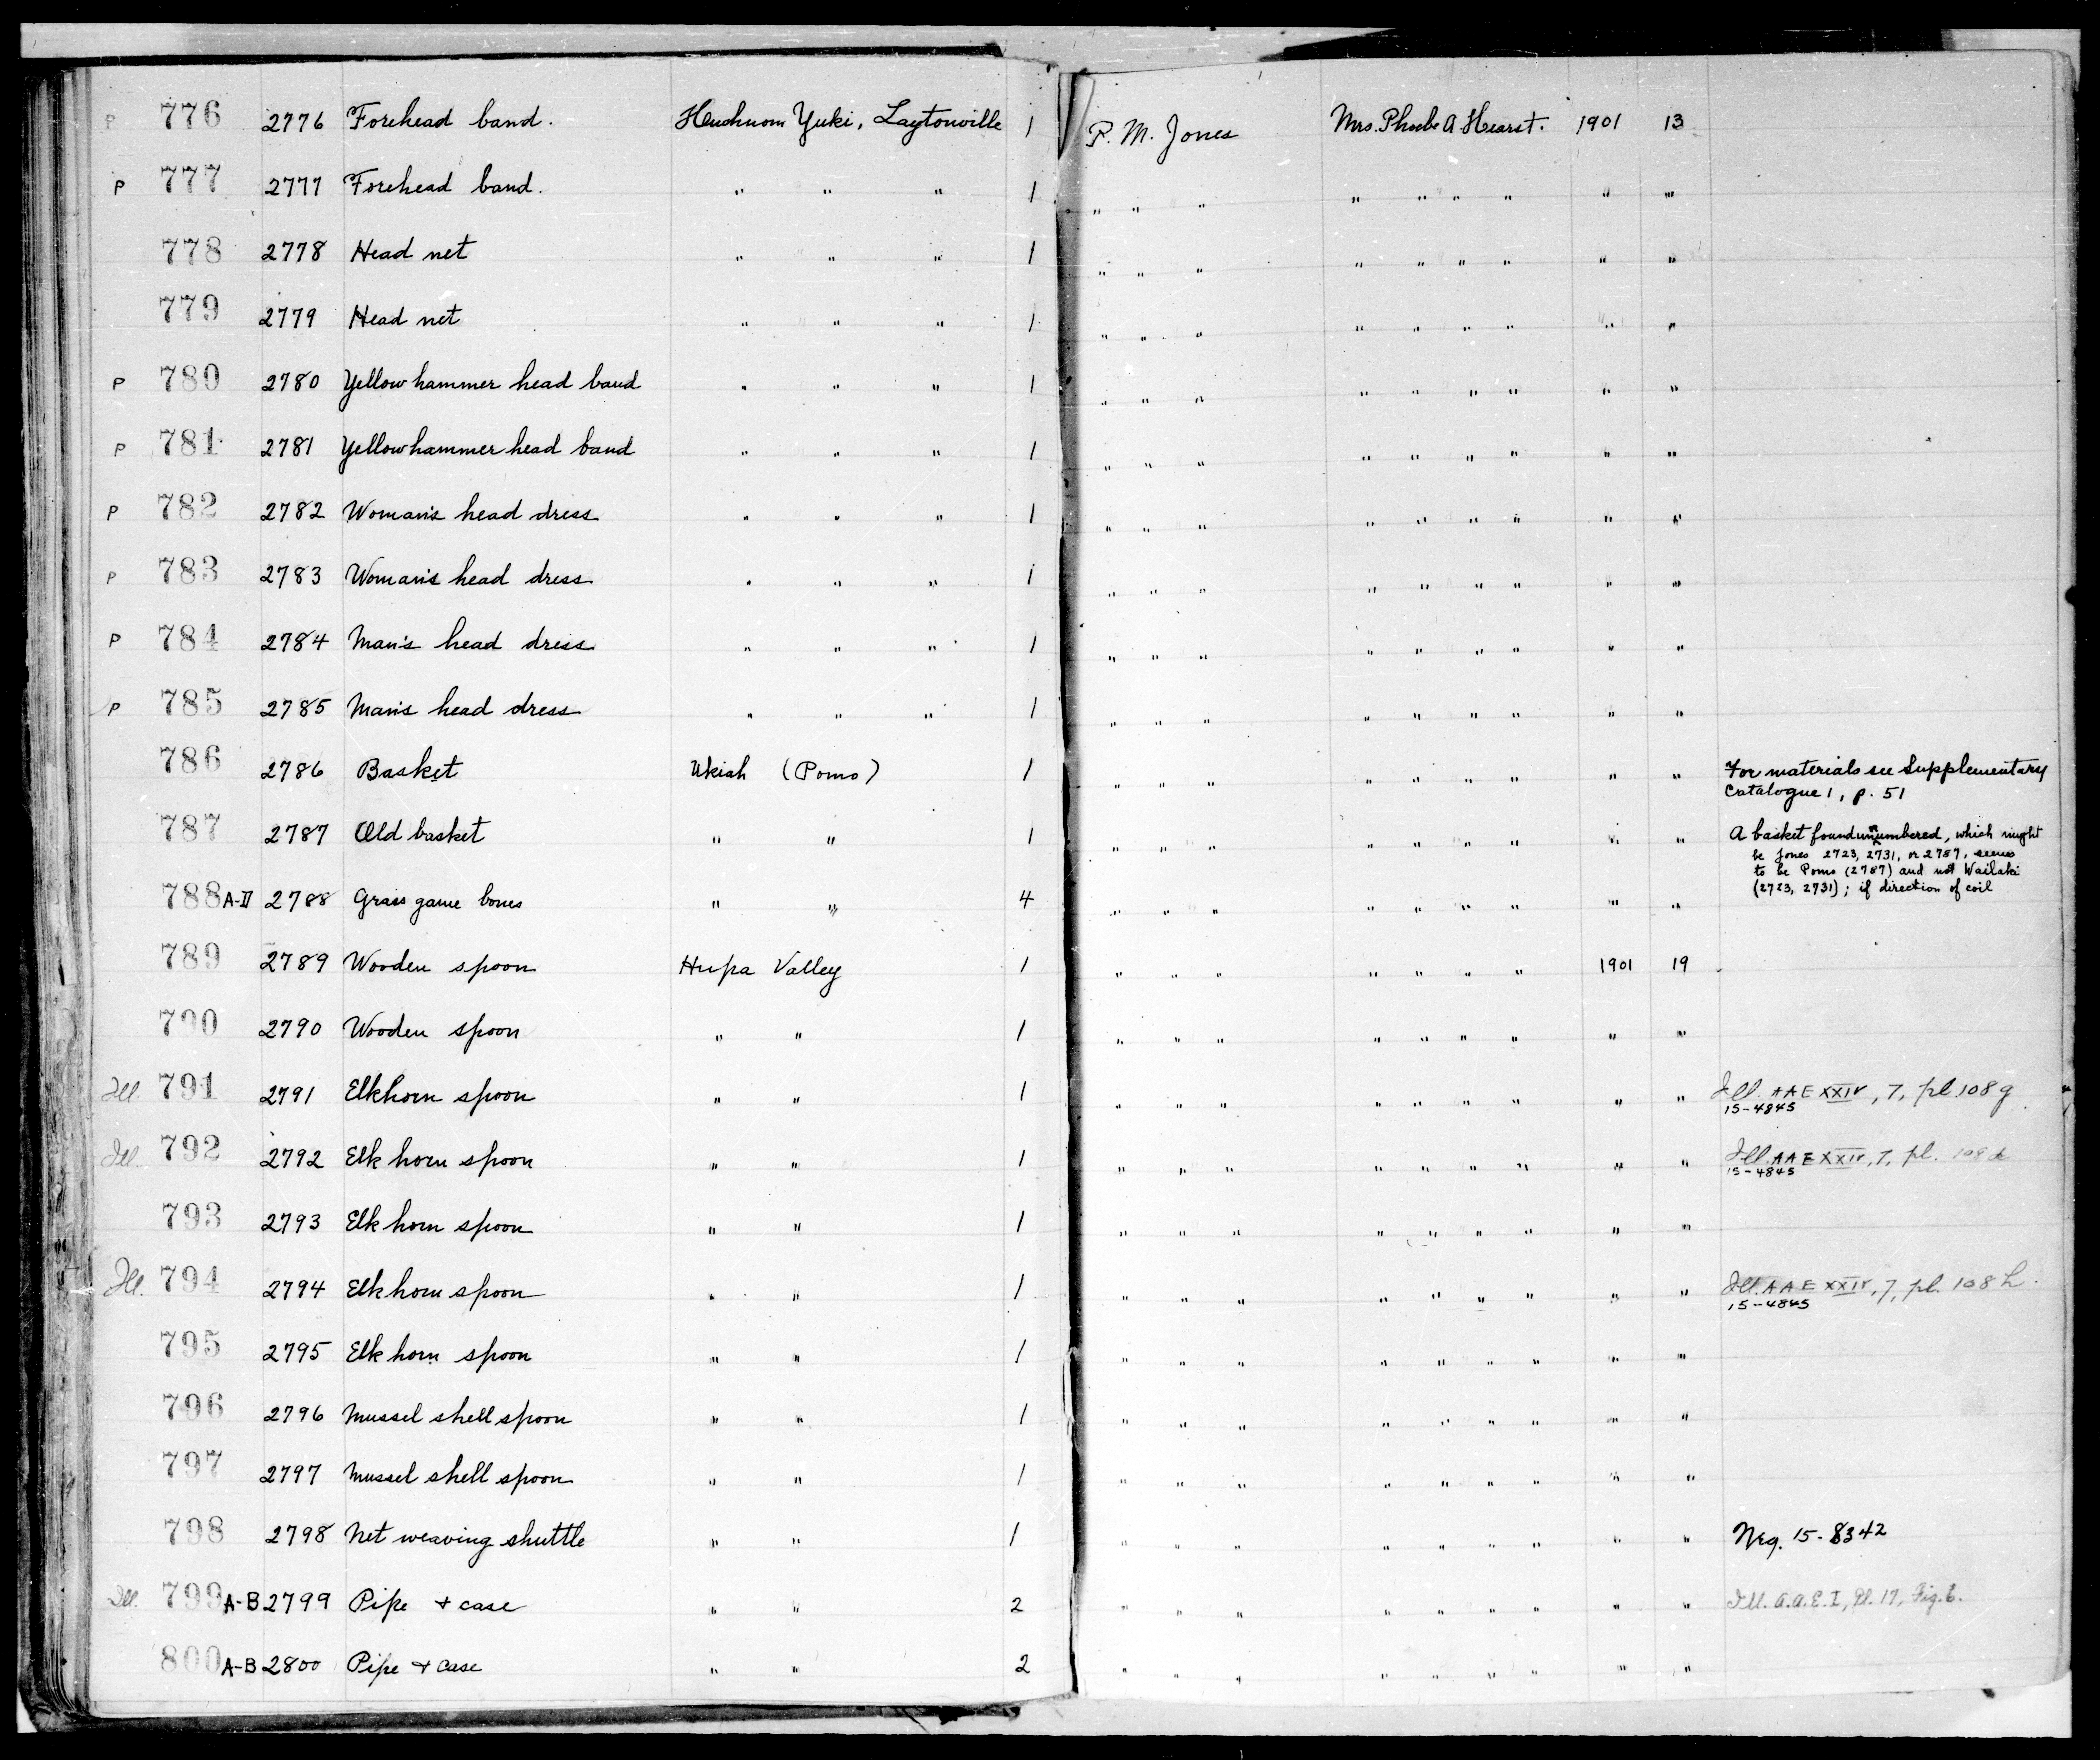 P 776 2776 Forehead band. Huchnom Yuki, Laytonville 1 P. M. Jones Mrs. Phoebe A Hearst. 1901 13
P 777 2777 Forehead band. " " " 1 " " " " " " " " "
778 2778 Head net " " " 1 " " " " " " " " "
779 2779 Head net " " " 1 " " " " " " " " "
P 780 2780 Yellow hammer head band " " " 1 " " " " " " " " "
P 781 2781 Yellowhammer head band " " " 1 " " " " " " " " "
P 782 2782 Woman's head dress " " " 1 " " " " " " " " "
P 783 2783 Woman's head dress " " " 1 " " " " " " " " "
P 784 2784 Man's head dress " " " 1 " " " " " " " " "
P 785 2785 Man's head dress " " " 1 " " " " " " " " "
786 2786 Basket Ukiah (Pomo) 1 " " " " " " " " " For materials see Supplementary
Catalogue 1, p. 51
787 2787 Old basket " " 1 " " " " " " " " " A basket found unnumbered, which might
be Jones 2723, 2731, or 2787, seems
to be Pomo (2787) and not Wailaki
(2723, 2731); if direction of coil
788 A-D 2788 Grass game bones " " 4 " " " " " " " " "
789 2789 Wooden spoon Hupa Valley 1 " " " " " " " 1901 19
790 2790 Wooden spoon " " 1 " " " " " " " " "
Ill. 791 2791 Elkhorn spoon " " 1 " " " " " " " " " Ill. AAE XXIV, 7, pl. 108 g
15-4845
Ill. 792 2792 Elk horn spoon " " 1 " " " " " " " " " Ill. AAE XXIV, 7, pl. 108
15-4845
793 2793 Elk horn spoon " " 1 " " " " " " " " "
Ill. 794 2794 Elk horn spoon " " 1 " " " " " " " " " Ill. AAE XXIV, 7, pl. 108 h.
15-4845
795 2795 Elk horn spoon " " 1 " " " " " " " " "
796 2796 Mussel shell spoon " " 1 " " " " " " " " "
797 2797 Mussel shell spoon " " 1 " " " " " " " " "
798 2798 Net weaving shuttle " " 1 " " " " " " " " " Neg. 15-8342
Ill. 799 A-B 2799 Pipe + case " " 2 " " " " " " " " " Ill. A.A.E. I, Pl. 17, Fig. 6.
800 A-B 2800 Pipe + case " " 2 " " " " " " " " "